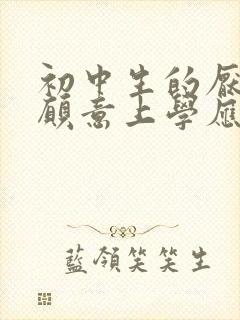 初中生的厭
願意上學應
藍領笑笑生